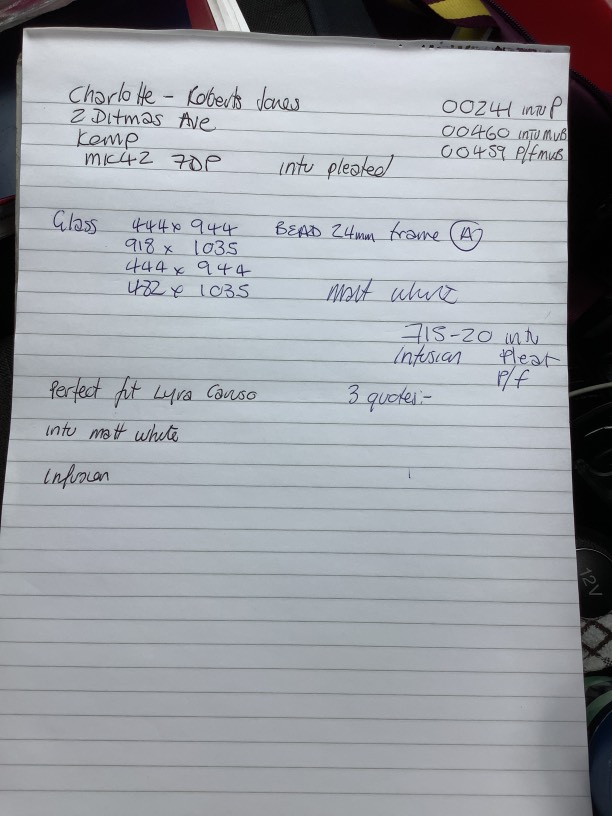 Charlotte - Roberts Jones
00241 INTU P
2 Ditmas Ave
00460 INTU MVB
Kemp
00459 P/f MVB
MK42 7DP
intu pleated
Glass 444 x 944 BEAD 24mm frame A
918 x 1035
444 x 944
482 x 1035
Matt white
715-20 intu
Infusian Pleat
P/f
Perfect fit Lyra Canso
3 quotes:-
intu matt white
Infusian
12V